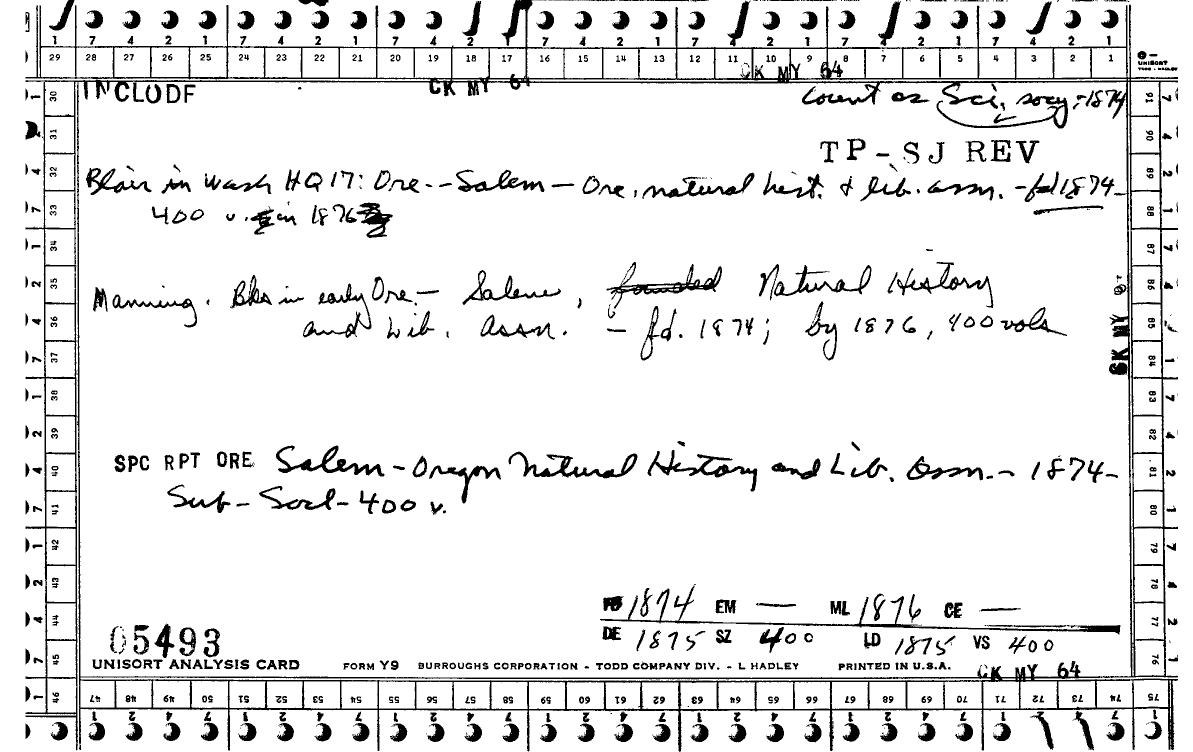 7 4 2 1 7 4 2 1 7 4 2 1 7 4 2 1 7 4 2 1 7 4 2 1 7 4 2 1
29 28 27 26 25 24 23 22 21 20 19 18 17 16 15 14 13 12 11 10 9 8 7 6 5 4 3 2 1
UNISORT
INCLUDE
CK MY 64
CK MY 64
count as Sci. socy. - 1874
TP-SJ REV
Blair in Wash HQ 17: Ore.--Salem - Ore. natural hist. & lib. assn. - fd 1874-
400 v. in 1876
Manning. Bks in early Ore. - Salem, founded Natural History
and Lib. Assn. - fd. 1874; by 1876, 400 vols
CK MY
SPC RPT ORE Salem - Oregon Natural History and Lib. Assn. - 1874-
Sub - Socl - 400 v.
1874 EM — ML 1876 CE —
DE 1875 SZ 400 LD 1875 VS 400
05493
UNISORT ANALYSIS CARD FORM Y9 BURROUGHS CORPORATION - TODD COMPANY DIV. - L HADLEY PRINTED IN U.S.A.
CK MY 64
30 31 32 33 34 35 36 37 38 39 40 41 42 43 44 45 46
91 90 89 88 87 86 85 84 83 82 81 80 79 78 77 76
47 48 49 50 51 52 53 54 55 56 57 58 59 60 61 62 63 64 65 66 67 68 69 70 71 72 73 74 75